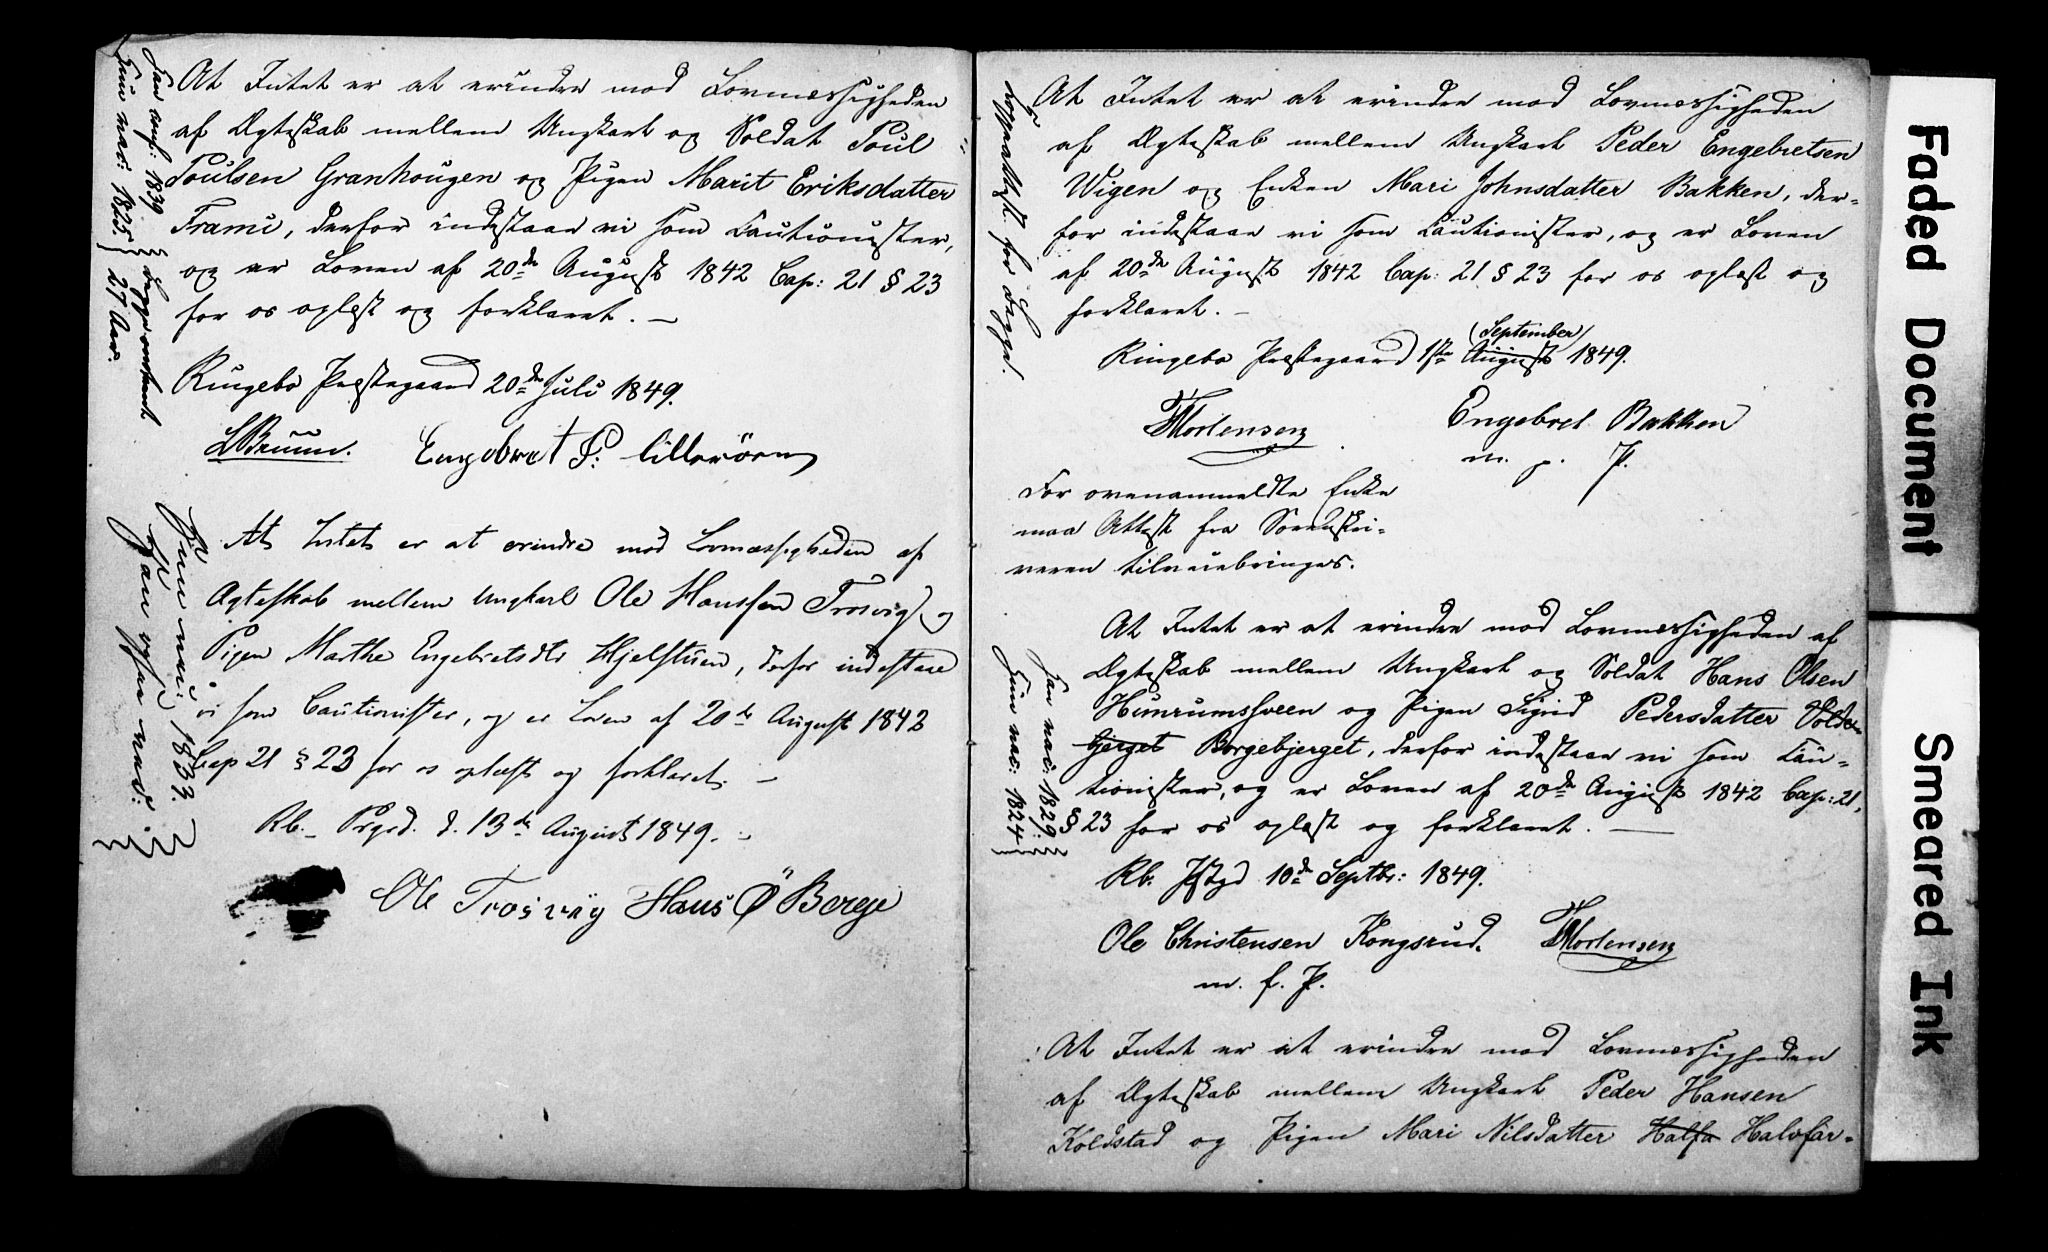 At Intet er at erindre mod Lovmæssigheden
af Ægteskab mellem Ungkarl og Soldat Poul
Poulsen Granhougen og Pigen Marit Eriksdatter
Frami, derfor indestaar vi som Cautionister,
og er Loven af 20de August 1842 Cap: 21 § 23
for os oplæst og forklaret. —
Ringebo Præstegaard 20de Juli 1849.
LBruun. Engebret P: Lilleröen
Han 1839
Hun vac: 1825 27 Aar.
At Intet er at erindre mod Lovmæssigheden af
Ægteskab mellem Ungkarl Ole Hanssen Trosvig og
Pigen Marthe Engebretsdtr Hjelstuen, derfor indestaae
vi som Cautionister, og er Loven af 20de August 1842
Cap 21 § 23 for os oplæst og forklaret. —
Rb. Prgrd. d. 13de August 1849. –
Ole Trosvig Hans Ö Berge
Hun vac: 1833.
Han vac:
At Intet er at erindre mod Lovmæssigheden
af Ægteskab mellem Ungkarl Peder Engebretsen
Wigen og Enken Mari Johnsdatter Bakken, der-
for indestaae vi som Cautionister, og er Loven
af 20de August 1842 Cap: 21 § 23 for os oplæst og
forklaret. –
(September)
Ringebo Præstegaard 1ste August 1849.
Mortensen Engebret Bakken
m. p. P.
For ovenanmeldte Enke
maa Attest fra Sorenskri-
veren tilveiebringes.
for begge.
At Intet er at erindre mod Lovmæssigheden af
Ægteskab mellem Ungkarl og Soldat Hans Olsen
Hunrumssveen og Pigen Sigrid Pedersdatter Volde
bjerget Borgebjerget, derfor indestaae vi som Cau-
tionister, og er Loven af 20de August 1842 Cap: 21,
§ 23 for os oplæst og forklaret. —
Rb. Pstgd 10de Septbr: 1849.
Ole Christensen Kongsrud. Mortensen
m. f. P.
Han vac: 1829.
Hun vac: 1824
At Intet er at erindre mod Lovmæssigheden
af Ægteskab mellem Ungkarl Peder Hansen
Koldstad og Pigen Mari Nilsdatter Halfa Halvfar-
Faded Document
Smeared Ink